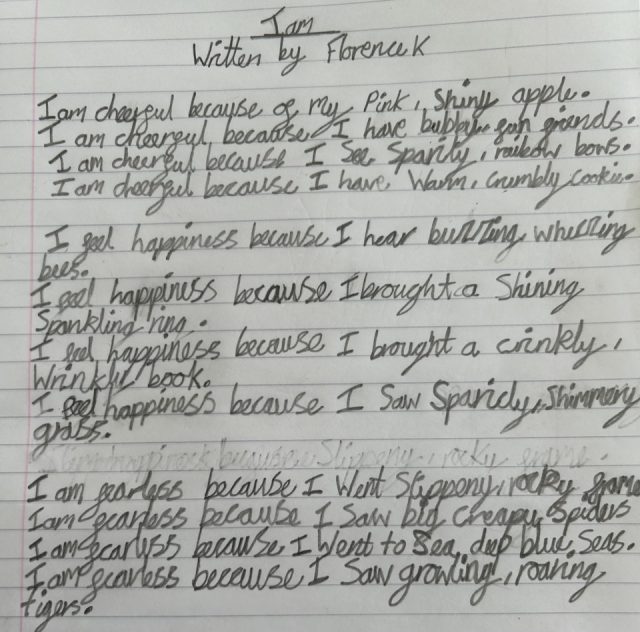 I am
Written by Florence K
I am cheerful because of my Pink, Shiny apple.
I am cheerful because I have bubbly fun friends.
I am cheerful because I See Sparkly, rainbow bows.
I am cheerful because I have, Warm, crumbly cookie.
I feel happiness because I hear buzzing, whizzing
bees.
I feel happiness because I brought a Shining
Sparkling ring.
I feel happiness because I brought a crinkly,
Wrinkly book.
I feel happiness because I Saw Sparkly, Shimmery
grass.
because Slippery, rocky
I am fearless because I Went Slippery, rocky
I am fearless because I Saw big Creapy Spiders
I am fearless because I Went to Sea, deep blue, Seas.
I am fearless because I Saw growling, roaring
tigers.